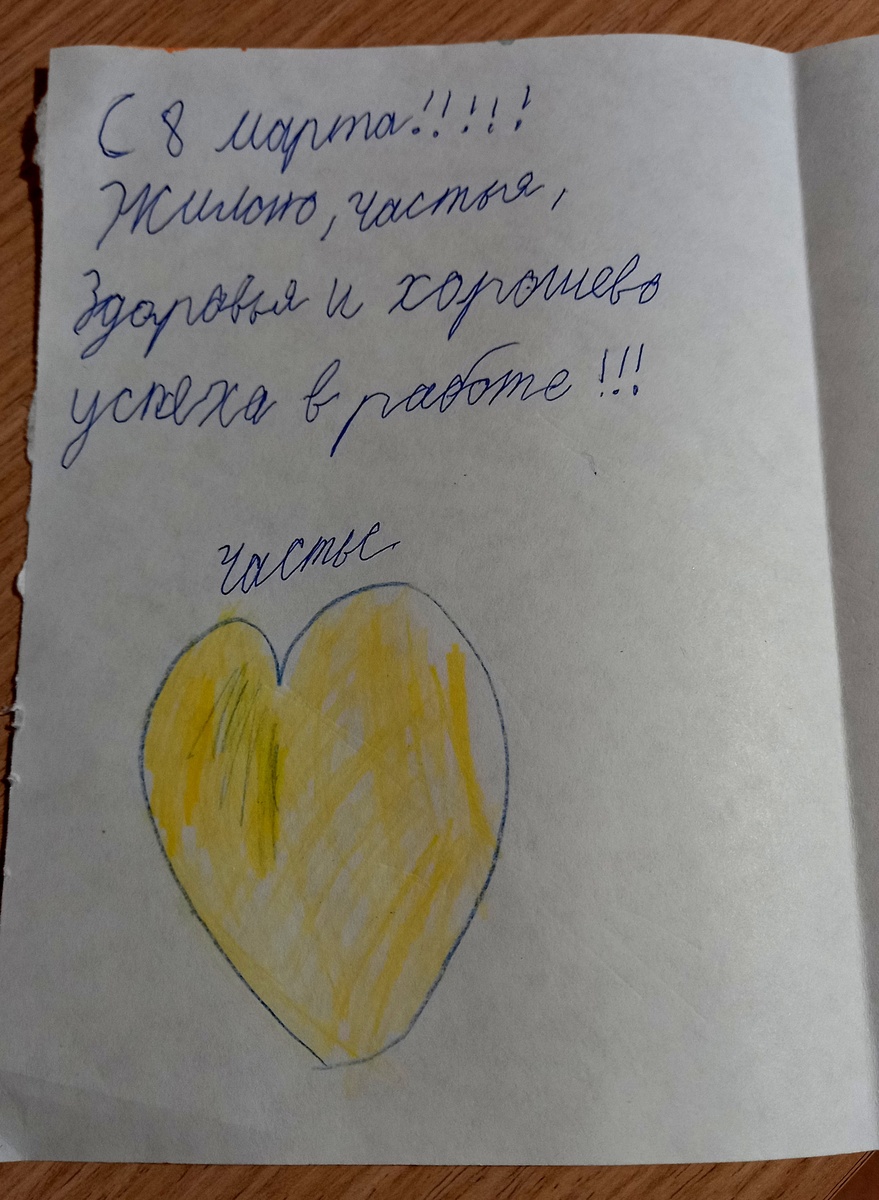 С 8 марта!!!!!
Жилаю, частья,
Здоровья и хорошево
успеха в работе!!!
частье